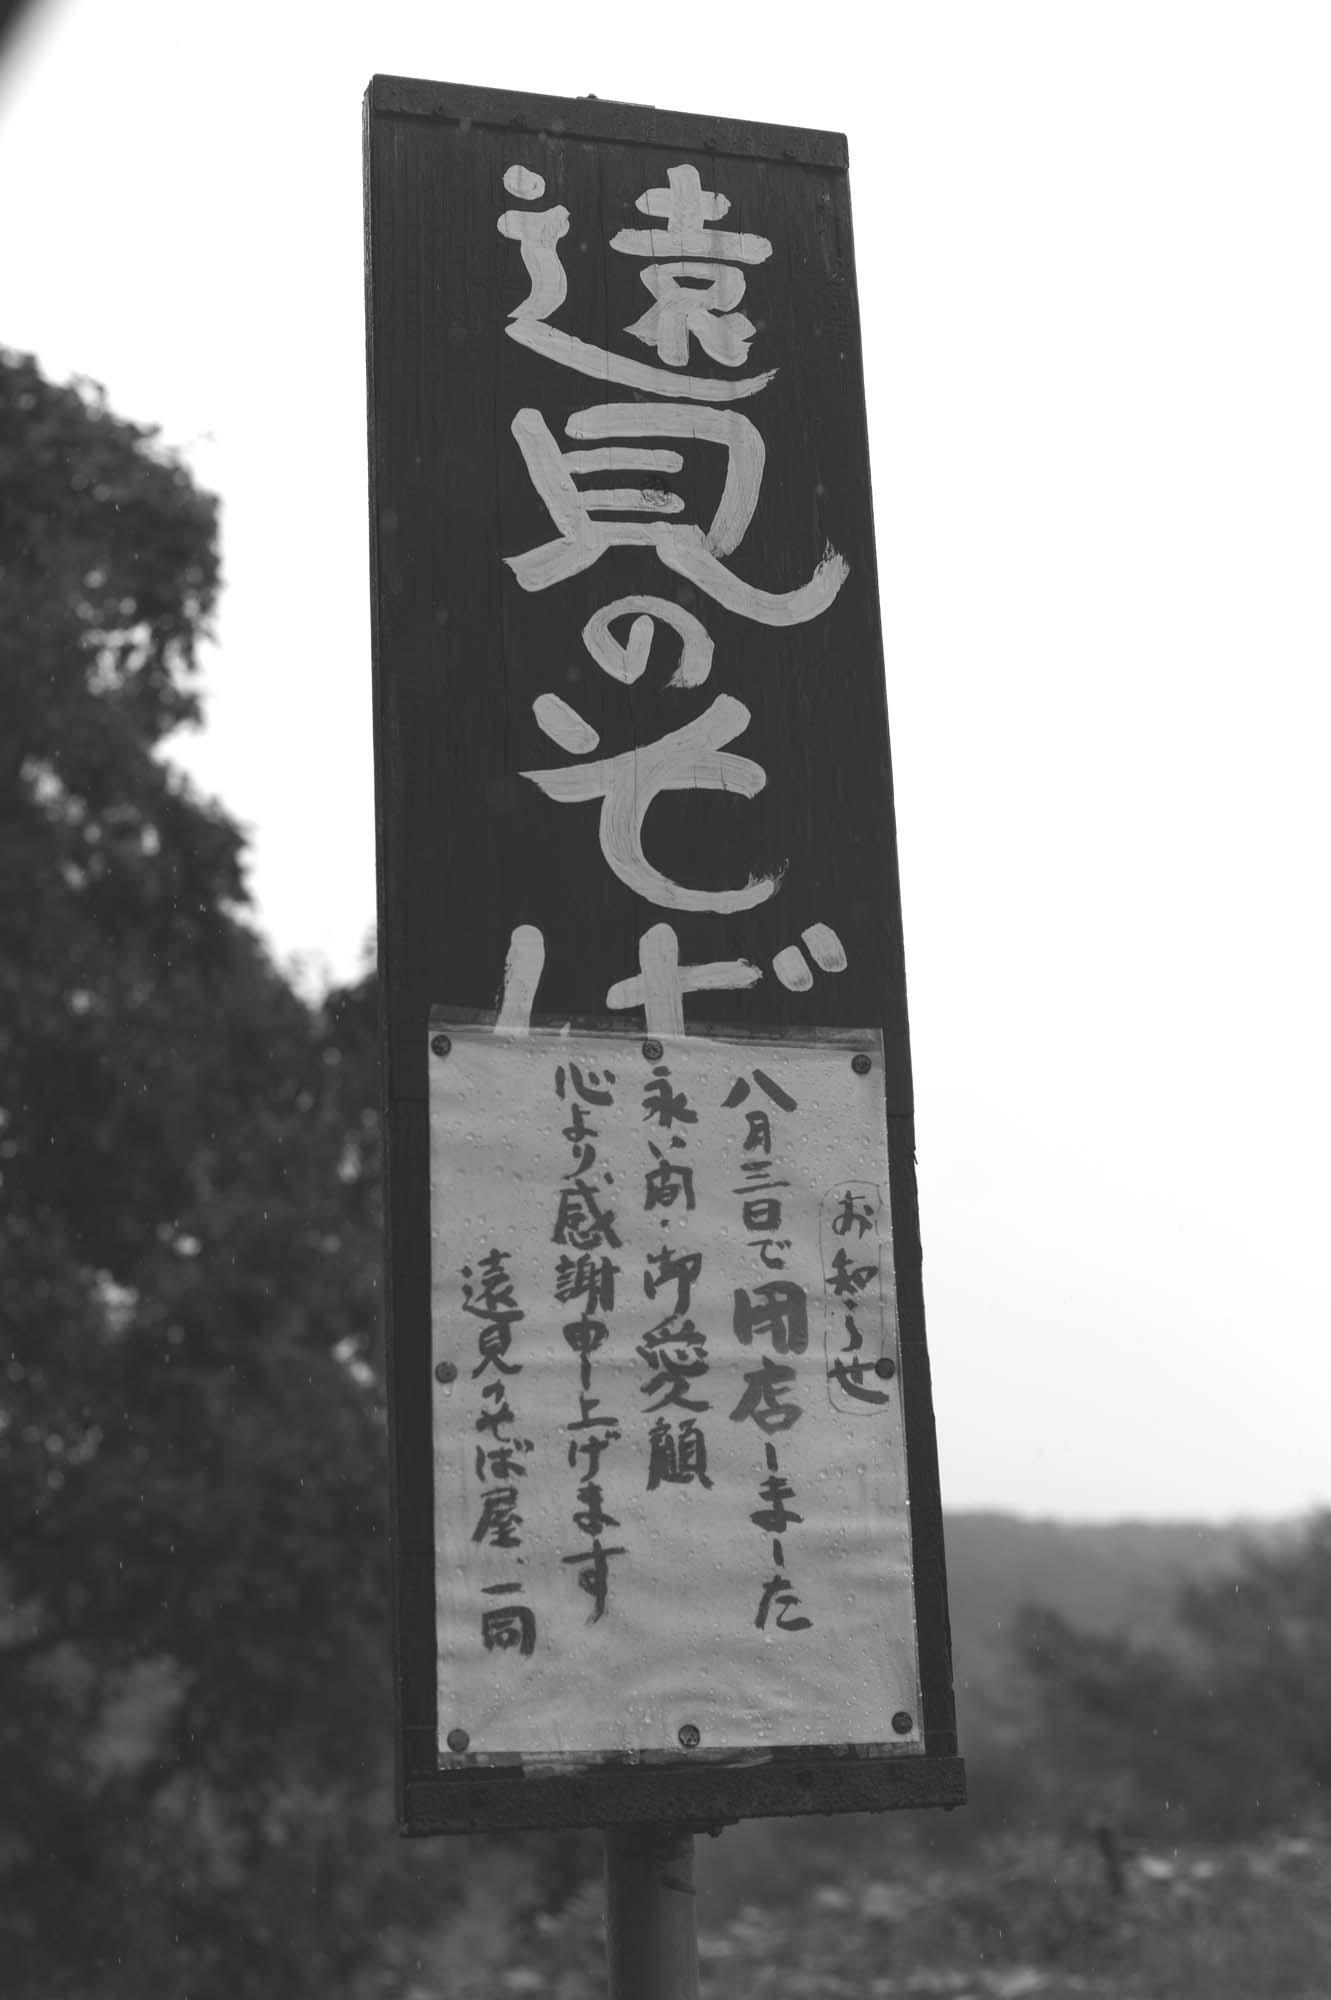 遠見のそば
お知らせ
八月三日で閉店しました
永い間・御愛顧
心より感謝申し上げます
遠見のそば屋、一同